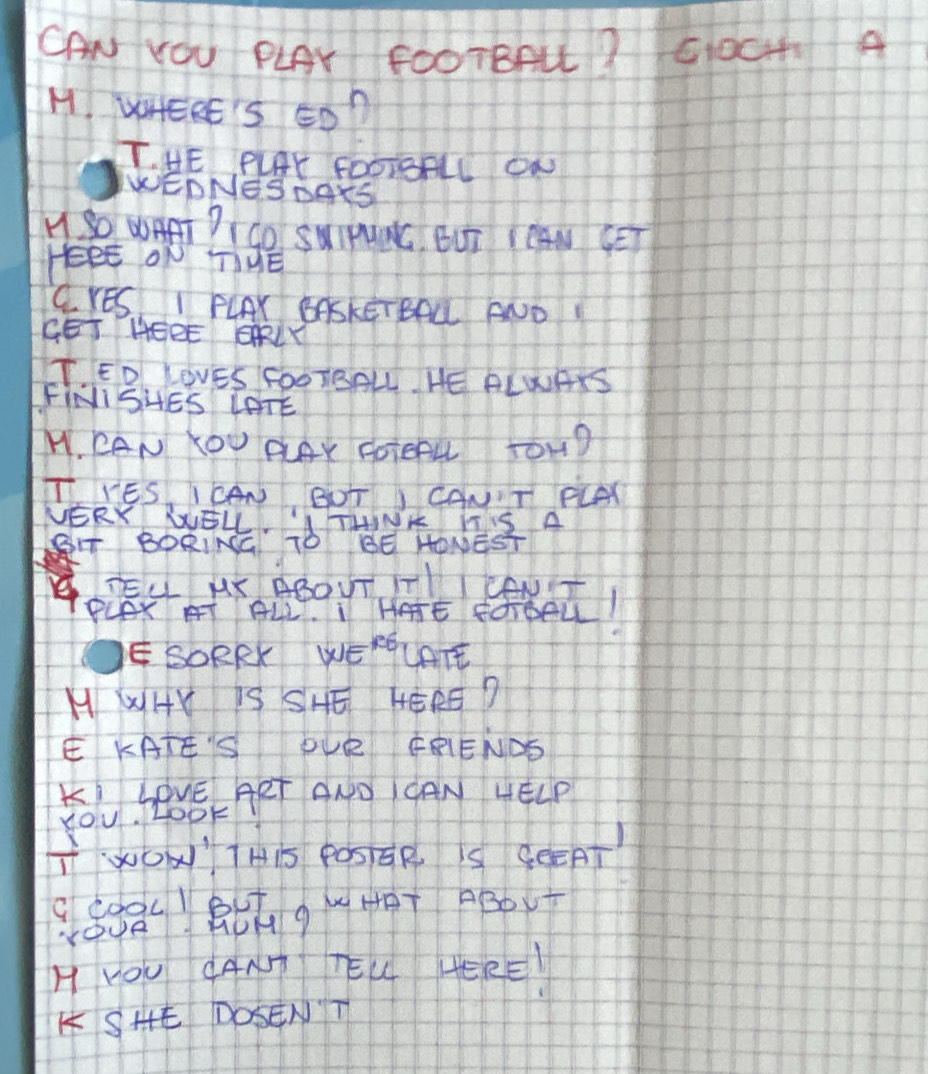 CAN YOU PLAY FOOTBALL? GIOCHI A
M. WHERE'S ED?
T. HE PLAY FOOTBALL ON
WEDNESDAYS
M. SO WHAT? I GO SWIMMING. BUT I CAN GET
HERE ON TIME
G. YES, I PLAY BASKETBALL AND I
GET HERE EARLY
T. ED LOVES FOOTBALL. HE ALWAYS
FINISHES LATE
M. CAN YOU PLAY FOTBALL TOM?
T YES, I CAN, BUT I CAN'T PLAY
VERY WELL. I THINK IT'S A
BIT BORING TO BE HONEST
G TELL MY ABOUT IT! I CAN'T
PLAY AT ALL. I HATE FOTBALL!
E SORRY WE'RE LATE
M WHY IS SHE HERE?
E KATE'S OUR FRIENDS
K I LOVE ART AND I CAN HELP
YOU. LOOK!
T WOW! THIS POSTER IS GREAT!
G COOL! BUT, WHAT ABOUT
YOUR MUM?
M YOU CAN'T TELL HERE!
K SHE DOSEN'T